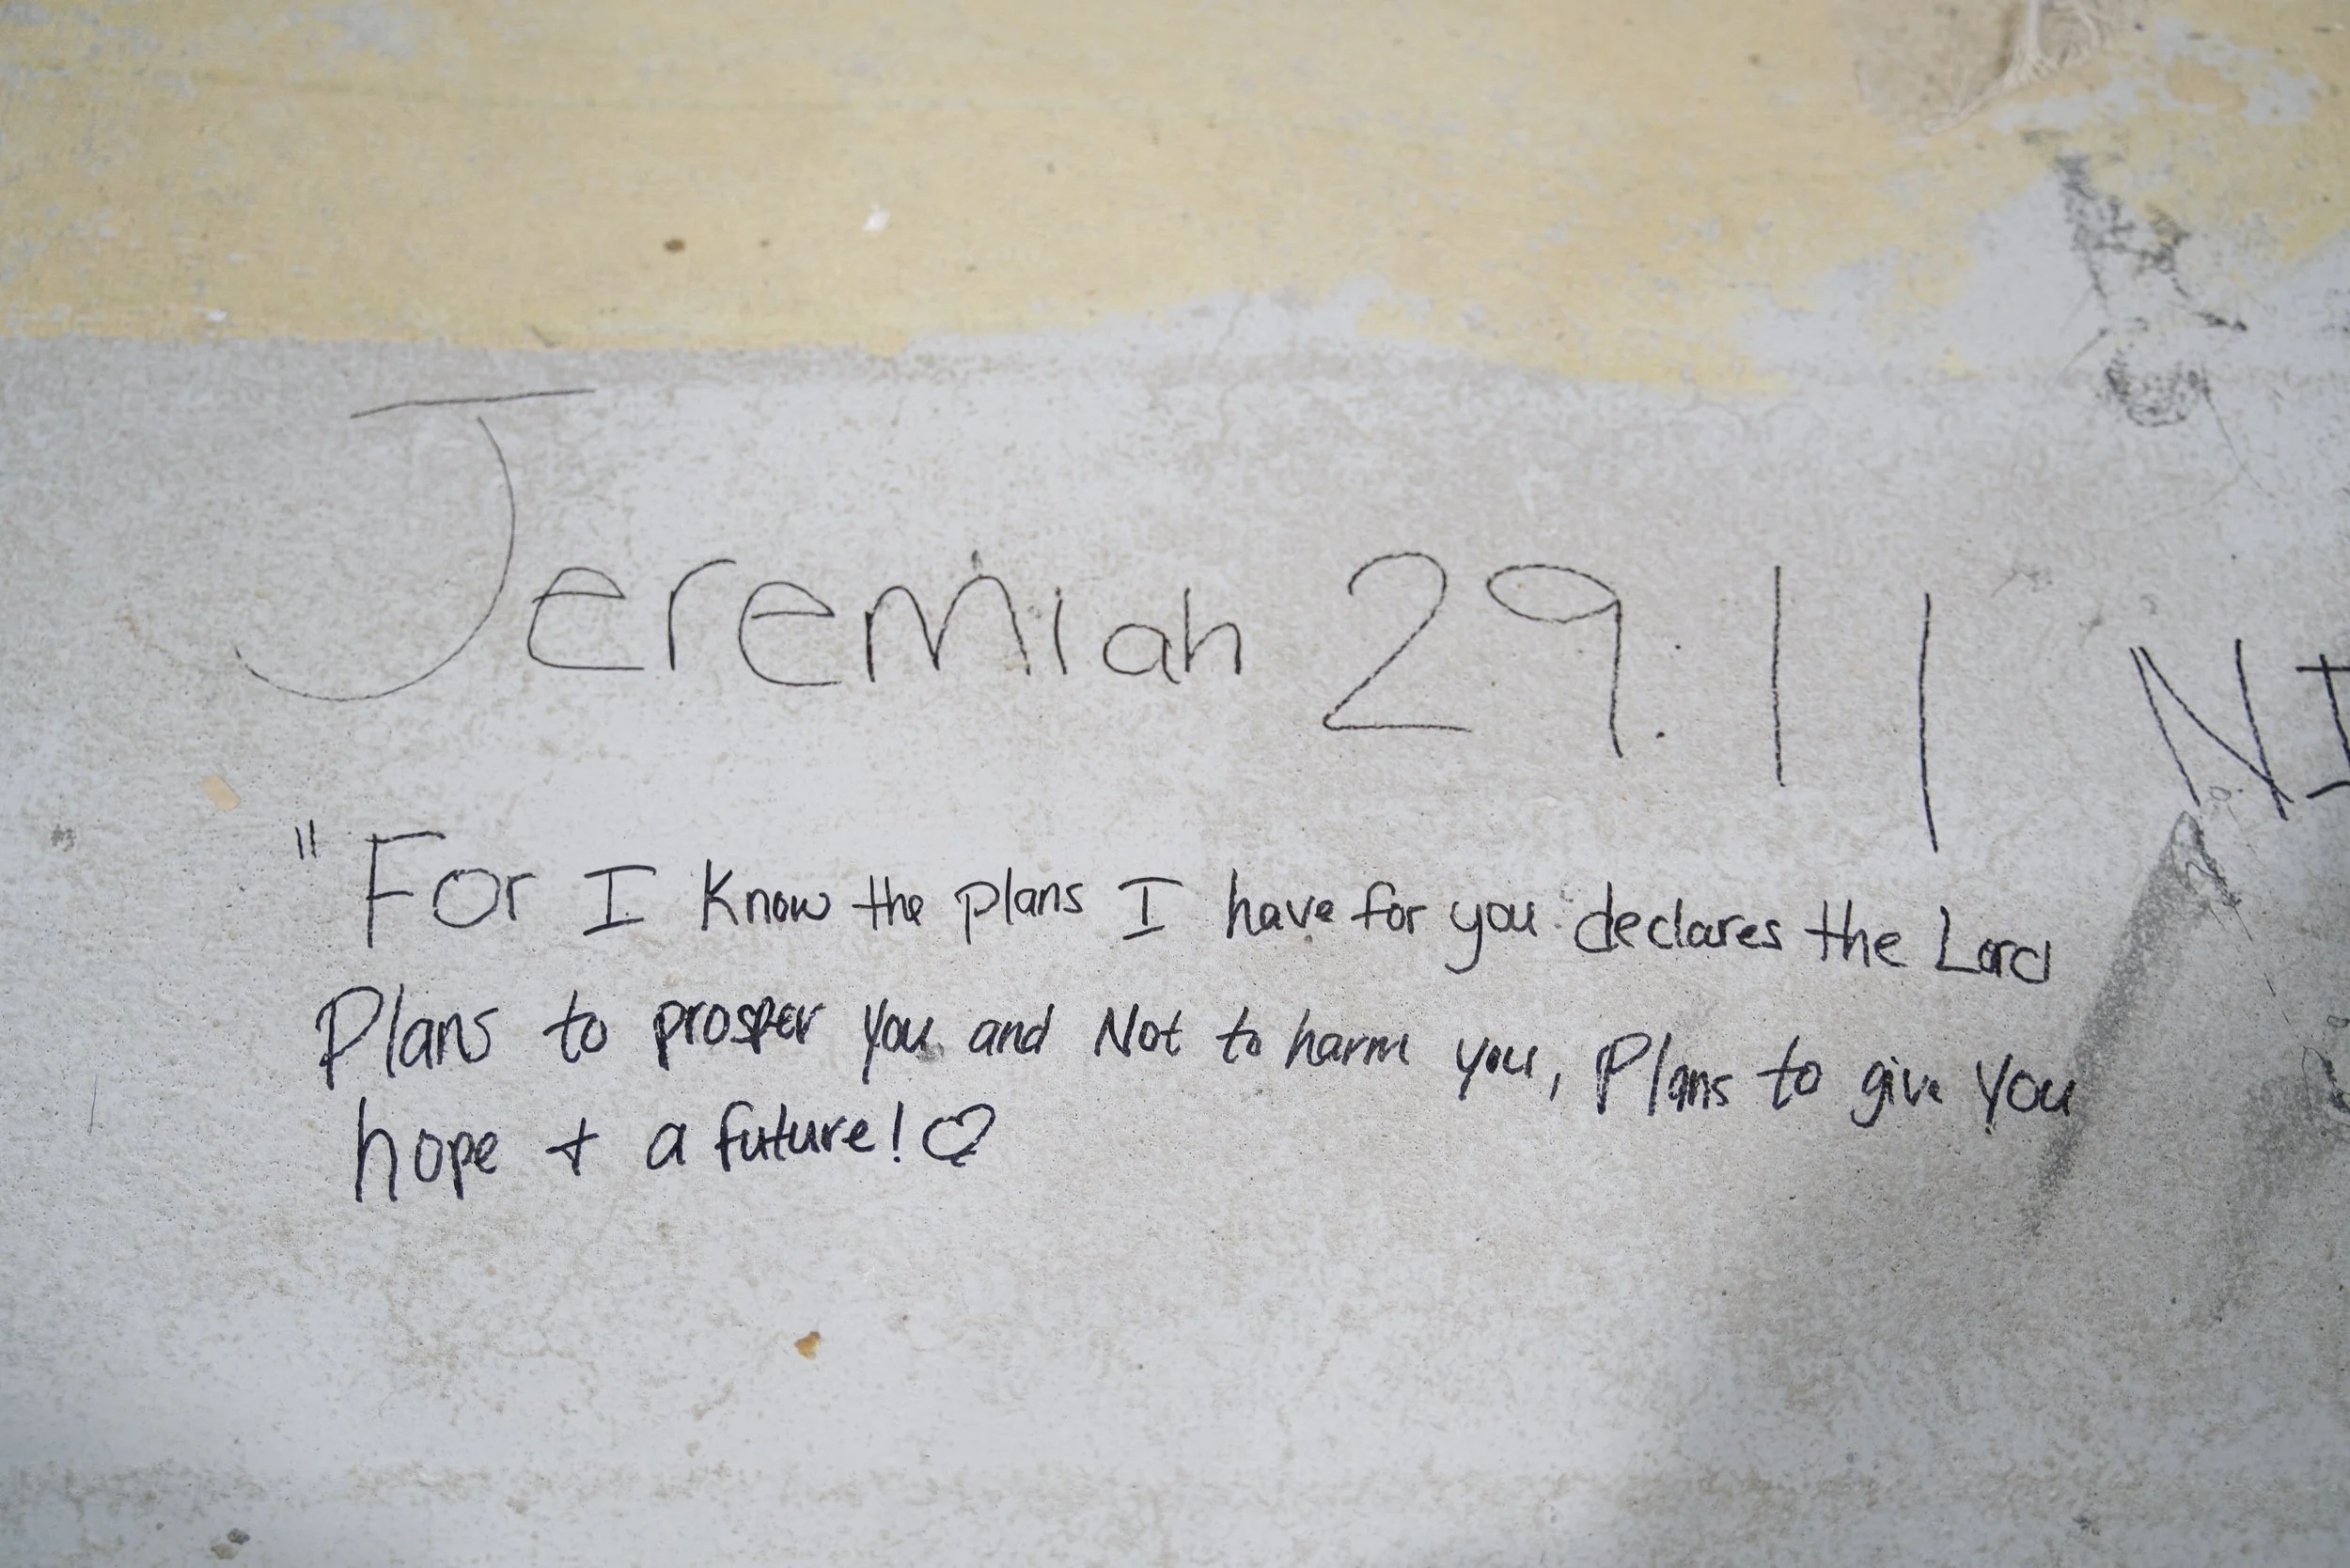 Jeremiah 29:11 NI
"For I know the plans I have for you declares the Lord
Plans to prosper you and Not to harm you, Plans to give you
hope + a future! ♡